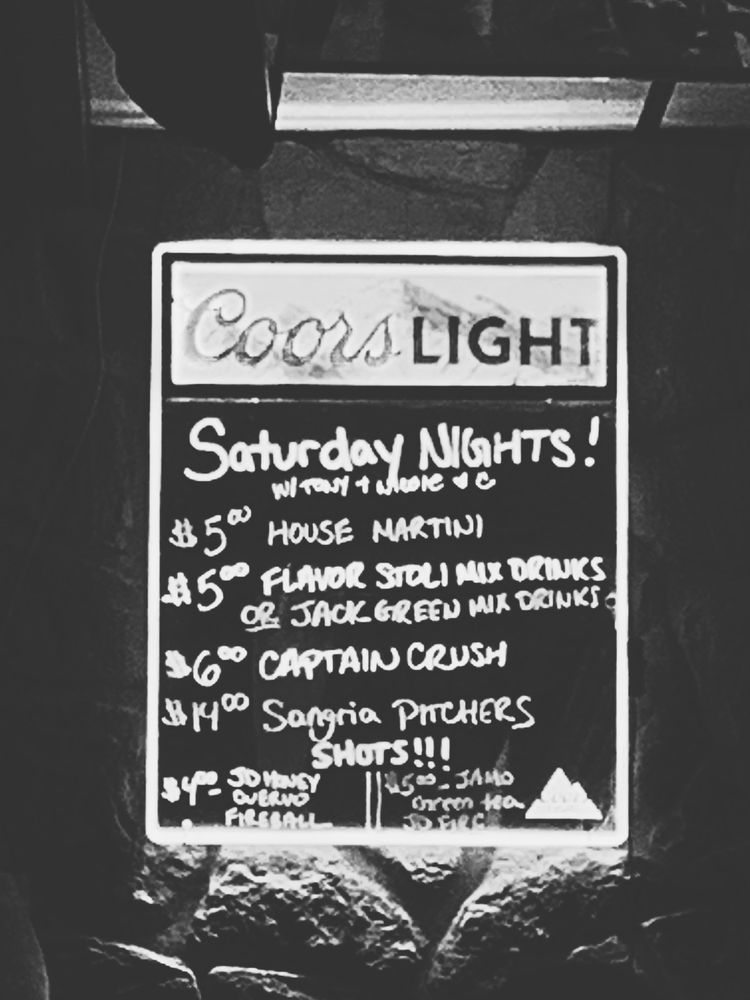 Coors LIGHT
Saturday NIGHTS!
W/ TONY + NICOLE + C
$5.00 HOUSE MARTINI
$5.00 FLAVOR STOLI MIX DRINKS
OR JACK GREEN MIX DRINKS
$6.00 CAPTAIN CRUSH
$14.00 Sangria PITCHERS
SHOTS!!!
$4.00- JD HONEY
CUERVO
FIREBALL
$5.00- JAMO
Green tea
JD FIRE